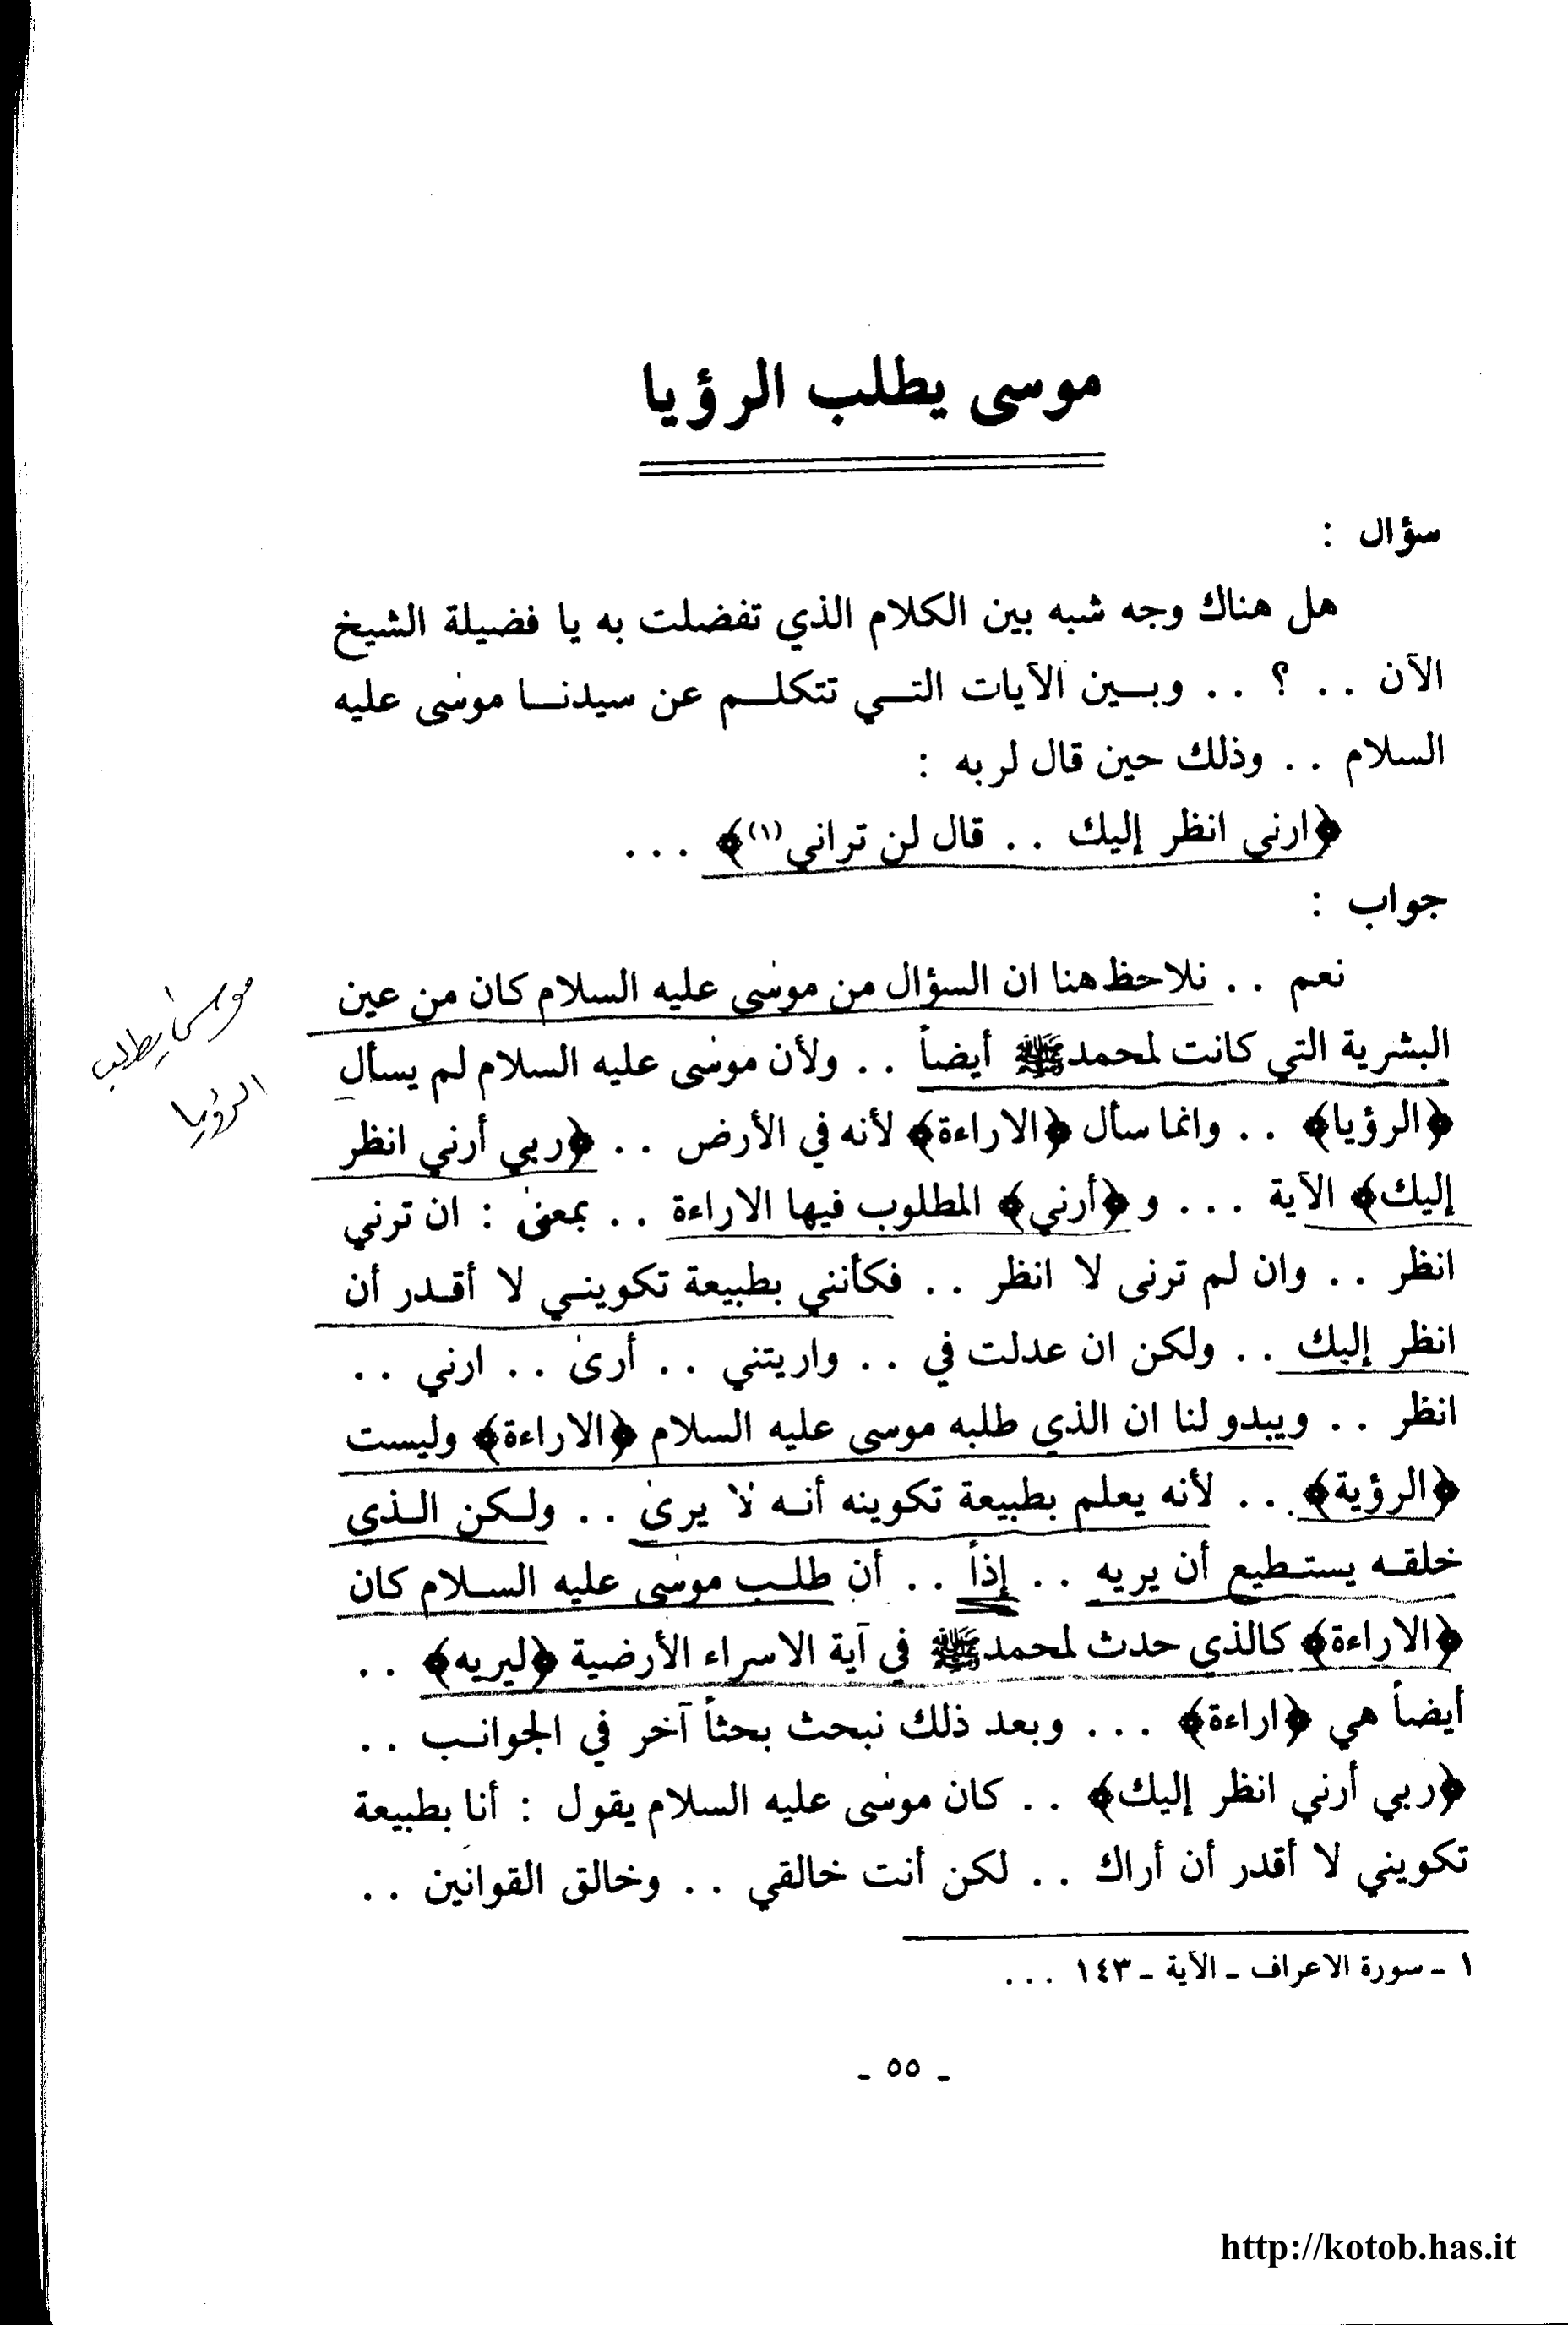 موسى يطلب الرؤيا
سؤال :
هل هناك وجه شبه بين الكلام الذي تفضلت به يا فضيلة الشيخ
الآن . . ؟ . . وبين الآيات التي تتكلم عن سيدنا موسى عليه
السلام . . وذلك حين قال لربه :
﴿ارني انظر إليك . . قال لن تراني(١)﴾ . . .
جواب :
نعم . . نلاحظ هنا ان السؤال من موسى عليه السلام كان من عين
البشرية التي كانت لمحمد ﷺ أيضاً . . ولأن موسى عليه السلام لم يسأل
﴿الرؤيا﴾ . . وانما سأل ﴿الاراءة﴾ لأنه في الأرض . . ﴿ربي أرني انظر
إليك﴾ الآية . . . و﴿أرني﴾ المطلوب فيها الاراءة . . بمعنى : ان ترني
انظر . . وان لم ترنى لا انظر . . فكأنني بطبيعة تكويني لا أقدر أن
انظر إليك . . ولكن ان عدلت في . . واريتني . . أرى . . ارني . .
انظر . . ويبدو لنا ان الذي طلبه موسى عليه السلام ﴿الاراءة﴾ وليست
﴿الرؤية﴾ . . لأنه يعلم بطبيعة تكوينه أنه لا يرى . . ولكن الذي
خلقه يستطيع أن يريه . . إذاً . . أن طلب موسى عليه السلام كان
﴿الاراءة﴾ كالذي حدث لمحمد ﷺ في آية الاسراء الأرضية ﴿ليريه﴾ . .
أيضاً هي ﴿اراءة﴾ . . . وبعد ذلك نبحث بحثاً آخر في الجوانب . .
﴿ربي أرني انظر إليك﴾ . . كان موسى عليه السلام يقول : أنا بطبيعة
تكويني لا أقدر أن أراك . . لكن أنت خالقي . . وخالق القوانين . .
موسى يطلب
الرؤيا
١ - سورة الاعراف - الآية - ١٤٣ . . .
- ٥٥ -
http://kotob.has.it